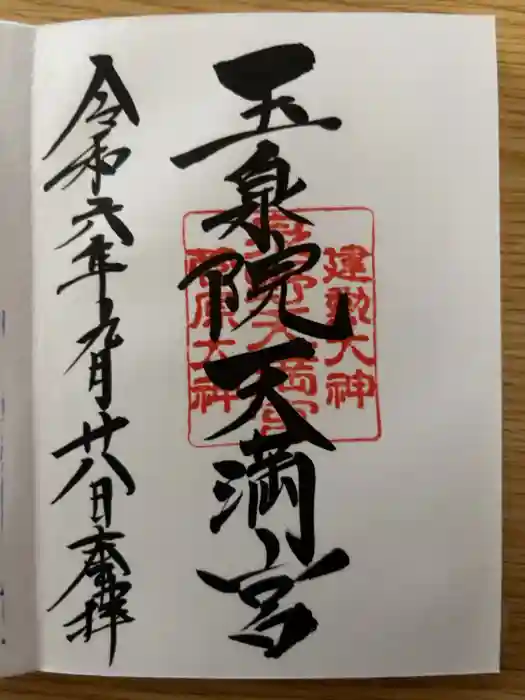 玉泉院天満宮
建勲大神
天満宮
原大神
令和六年九月廿八日奉拝